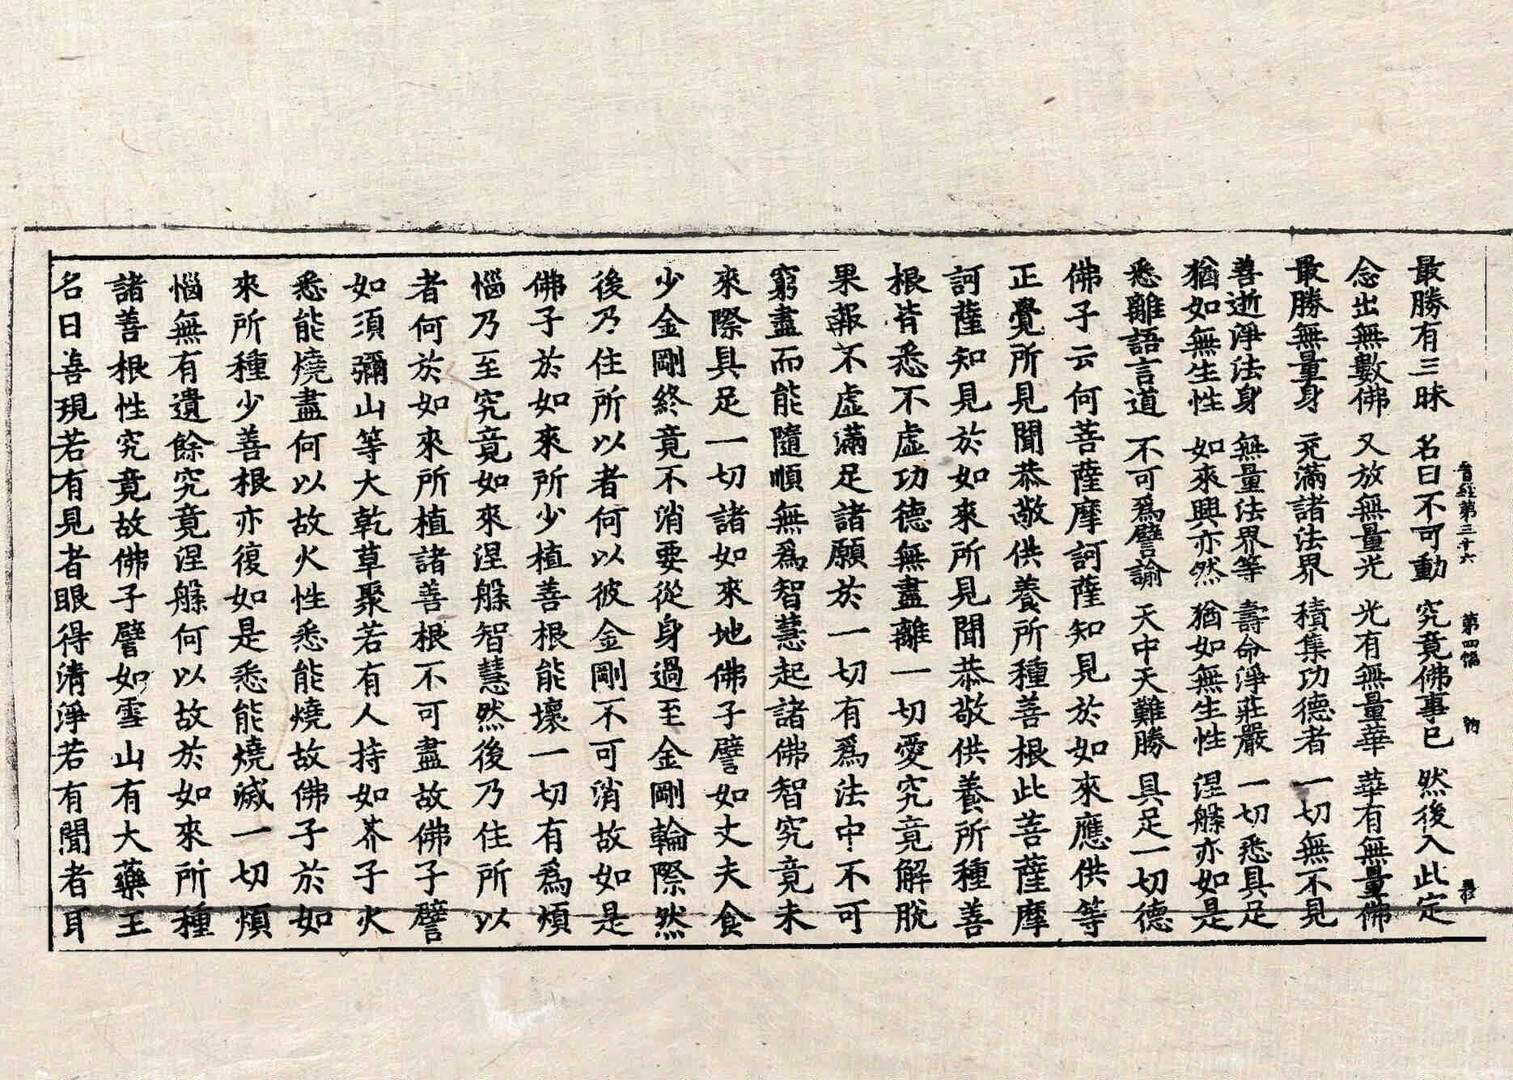 最勝有三昧　名曰不可動　究竟佛事已　然後入此定
首經第三十六　第四幅
念出無數佛　又放無量光　光有無量華　華有無量佛
最勝無量身　充滿諸法界　積集功德者　一切無不見
善逝淨法身　無量法界等　壽命淨莊嚴　一切悉具足
猶如無生性　如來興亦然　猶如無生性　涅槃亦如是
悉離語言道　不可為譬諭　天中天難勝　具足一切德
佛子云何菩薩摩訶薩知見於如來應供等
正覺所見聞恭敬供養所種善根此菩薩摩
訶薩知見於如來所見聞恭敬供養所種善
根皆悉不虛功德無盡離一切愛究竟解脫
果報不虛滿足諸願於一切有為法中不可
窮盡而能隨順無為智慧起諸佛智究竟未
來際具足一切諸如來地佛子譬如丈夫食
少金剛終竟不消要從身過至金剛輪際然
後乃住所以者何以彼金剛不可消故如是
佛子於如來所少植善根能壞一切有為煩
惱乃至究竟如來涅槃智慧然後乃住所以
者何於如來所植諸善根不可盡故佛子譬
如須彌山等大乾草聚若有人持如芥子火
悉能燒盡何以故火性悉能燒故佛子於如
來所種少善根亦復如是悉能燒滅一切煩
惱無有遺餘究竟涅槃何以故於如來所種
諸善根性究竟故佛子譬如雪山有大藥王
名曰善現若有見者眼得清淨若有聞者耳